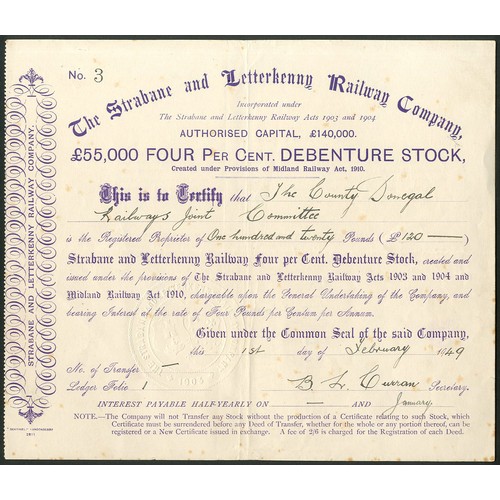 No. 3
The Strabane and Letterkenny Railway Company,
Incorporated under
The Strabane and Letterkenny Railway Acts 1903 and 1904
AUTHORISED CAPITAL, £140,000.
£55,000 FOUR PER CENT. DEBENTURE STOCK,
Created under Provisions of Midland Railway Act, 1910.
This is to Certify that The County Donegal
Railways Joint Committee
is the Registered Proprietor of One hundred and twenty Pounds (£120 —)
Strabane and Letterkenny Railway Four per Cent. Debenture Stock, created and
issued under the provisions of The Strabane and Letterkenny Railway Acts 1903 and 1904 and
Midland Railway Act 1910, chargeable upon the General Undertaking of the Company, and
bearing Interest at the rate of Four Pounds per Centum per Annum.
Given under the Common Seal of the said Company,
this 1st day of February 1949
No. of Transfer —
Ledger Folio 1
B. L. Curran Secretary.
INTEREST PAYABLE HALF-YEARLY ON — and January
NOTE.—The Company will not Transfer any Stock without the production of a Certificate relating to such Stock, which
Certificate must be surrendered before any Deed of Transfer, whether for the whole or any portion thereof, can be
registered or a New Certificate issued in exchange. A fee of 2/6 is charged for the Registration of each Deed.
STRABANE AND LETTERKENNY RAILWAY COMPANY.
1903